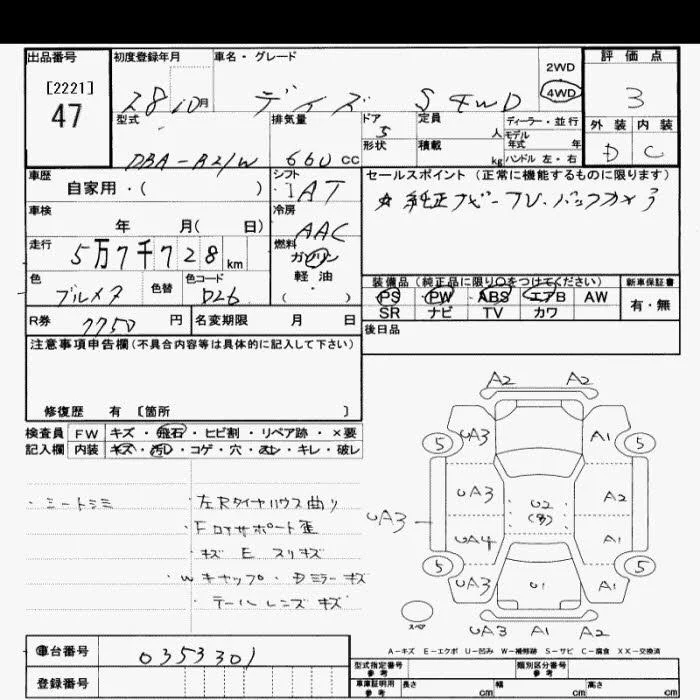 出品番号 初度登録年月 車名・グレード 評価点
[2221] 47 28 10月 デイズ S 4WD 2WD 4WD 3
型式 排気量 ドア 5 定員 人 ディーラー・並行 外装 内装
DBA-B21W 660 CC 形状 積載 kg モデル年式 年 ハンドル 左・右 D C
車歴 シフト セールスポイント (正常に機能するものに限ります)
自家用・( ) AT ☆純正ナビ・TV・バックカメラ
車検 冷房
年 月( 日) AAC
走行 燃料
5万7千728km ガソリン
軽油
( )
色 色替 色コード 装備品 (純正品に限り○をつけてください) 新車保証書
ブルメタ D26 PS PW ABS エアB AW 有・無
SR ナビ TV カワ
R券 7750 円 名変期限 月 日 後日品
注意事項申告欄(不具合内容等は具体的に記入して下さい)
修復歴 有 [箇所 ]
検査員 FW キズ・飛石・ヒビ割・リペア跡・×要
記入欄 内装 キズ・汚レ・コゲ・穴・スレ・キレ・破レ
A2 A2
5 UA3 A1 5
・シートシミ 左Rタイヤハウス曲り
UA3 UA3 U2 A2
・Fロアサポート歪
(多)
・キズ E スリキズ
UA4 A1
・Wキャップ・Dミラーキズ
5 UA3 U1 A1 5
・テールレンズキズ
スペア UA3 A1 A2
A-キズ E-エクボ U-凹み W-補修跡 S-サビ C-腐食 XX-交換済
車台番号 0353301 型式指定番号 参考 類別区分番号 参考
登録番号 車庫証明用 参考 長さ cm 幅 cm 高さ cm